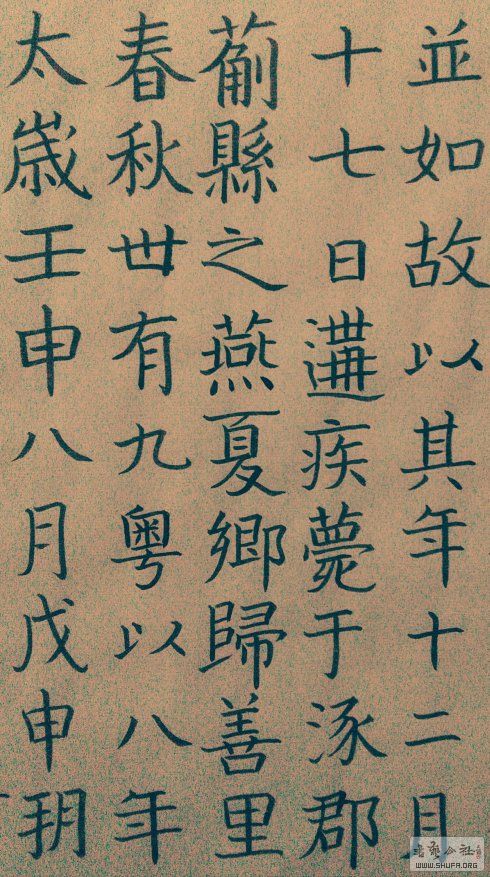 並如故以其年十二月
十七日遘疾薨于涿郡
薊縣之燕夏鄉歸善里
春秋丗有九粤以八年
太歳壬申八月戊申朔
WWW.SHUFA.ORG